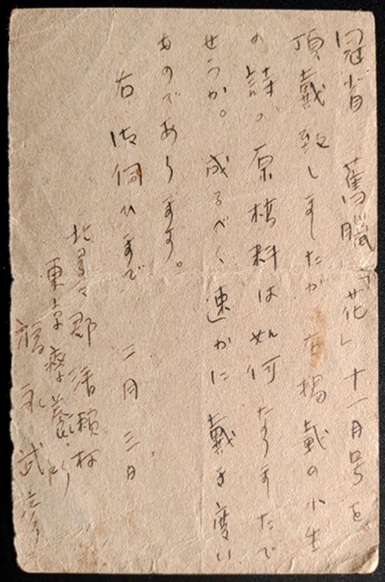 冠省 舊臘「花」十一月号を
頂戴致しましたが 右掲載の小生
の詩の原稿料は如何なりましたで
せうか。成るべく速かに戴き度い
ものであります。
右御伺ひまで 二月三日
北多摩郡清瀬村
東京療養所
福永武彦